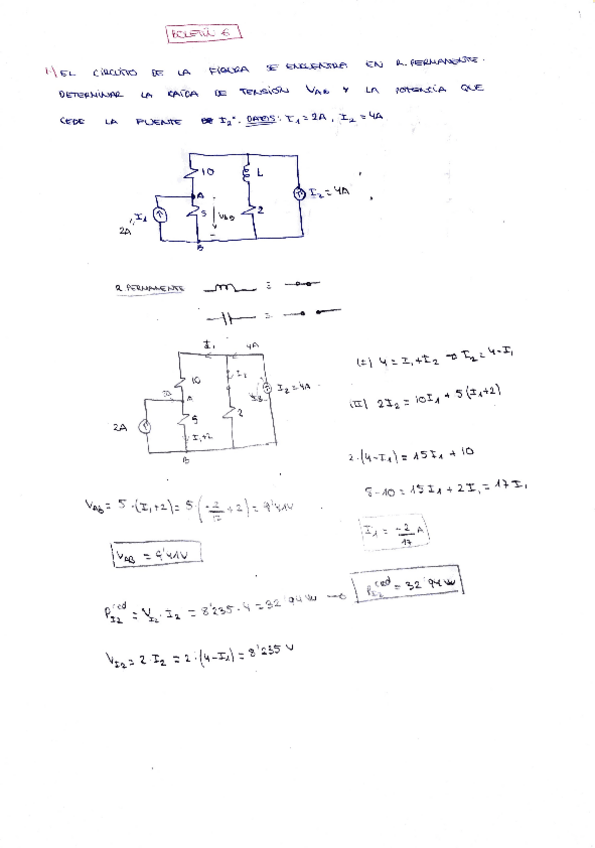 BOLETÍN 6
1.) EL CIRCUITO DE LA FIGURA SE ENCUENTRA EN R. PERMANENTE.
DETERMINAR LA CAÍDA DE TENSIÓN VAB Y LA POTENCIA QUE
CEDE LA FUENTE DE I2. DATOS: I1 = 2A, I2 = 4A
10
L
A
I2 = 4A
I1
5
VAB
2
2A
B
R PERMANENTE
I1
4A
10
I2
I2 = 4A
2A
A
2A
5
2
I1+2
B
(I) 4 = I1 + I2 ⇒ I2 = 4-I1
(II) 2I2 = 10I1 + 5(I1+2)
2·(4-I1) = 15I1 + 10
8-10 = 15I1 + 2I1 = 17I1
I1 = -2/17 A
VAB = 5·(I1+2) = 5·(-2/17+2) = 9'41V
VAB = 9'41V
PI2ced = VI2·I2 = 8'235·4 = 32'94W → PI2ced = 32'94W
VI2 = 2·I2 = 2·(4-I1) = 8'235 V